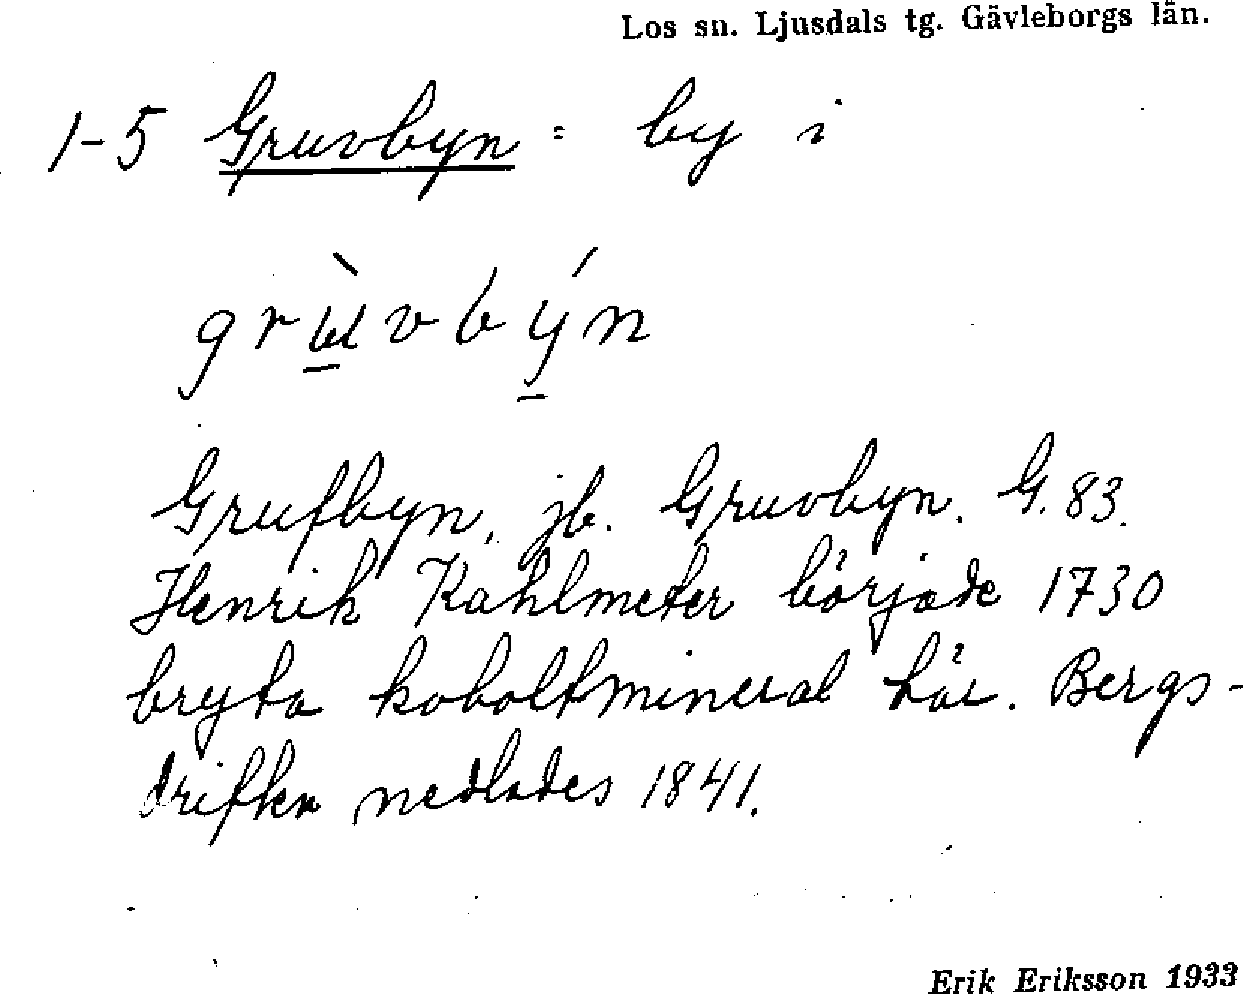 Los sn. Ljusdals tg. Gävleborgs län.
1-5 Gruvbyn = by i
grùvbýn
Grufbyn, jb. Gruvbyn. G. 83.
Henrik Kahlmeter började 1730
bryta koboltmineral här. Bergs-
driften nedlades 1841.
Erik Eriksson 1933